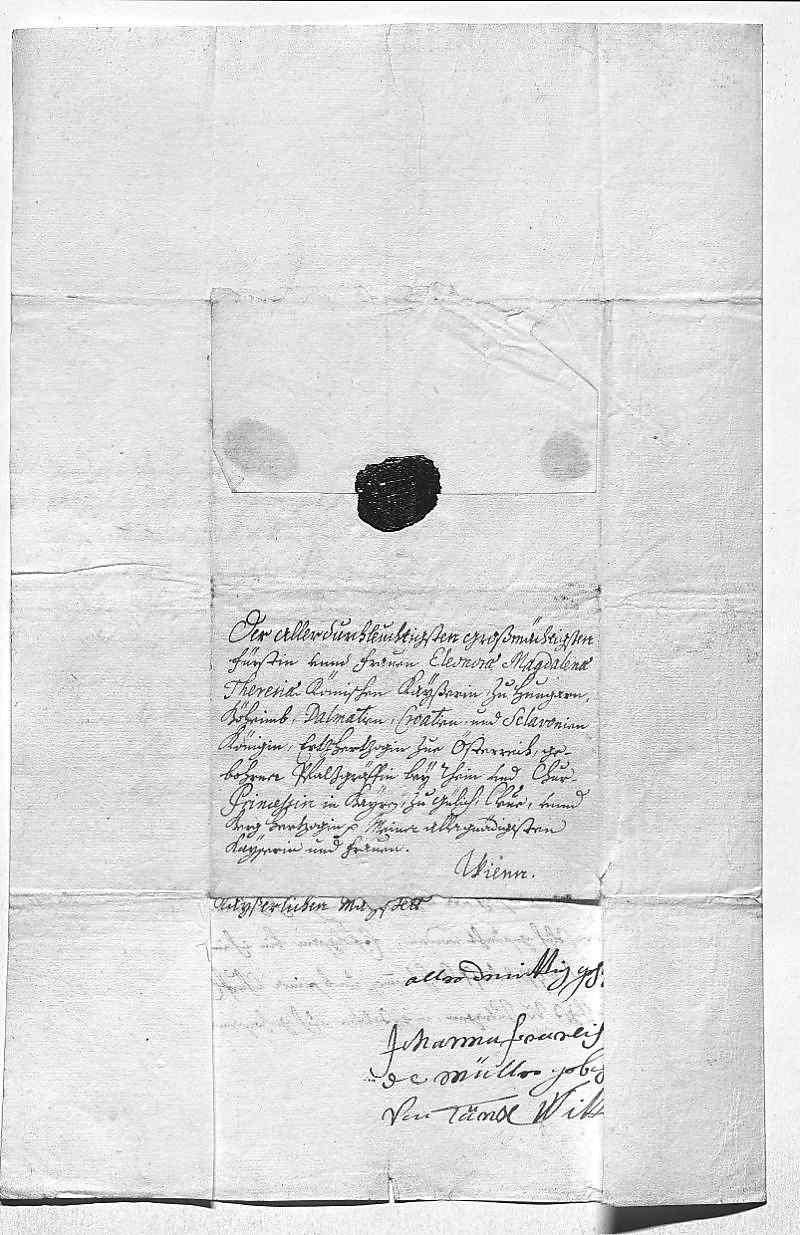 Der allerdurchleuchtigsten großmächtigsten
Fürstin vnnd Frauen Eleonora Magdalena
Theresia Römischen Kayßerin, Zu Hungarn,
Böheimb, Dalmatien, Croatien, und Sclavonien
Königin, Ertzhertzogin zue Österreich, ge-
bohrner Pfaltzgräffin bey Rhein und Chur-
Princessin in Bayrn, zu Gülich, Cleve, vnnd
Berg Hertzogin Meiner allergnädigsten
Kayserin und Frauen.
Wienn.
Kayserlichen Mayestett
Johanna
de Müller
Von Witt